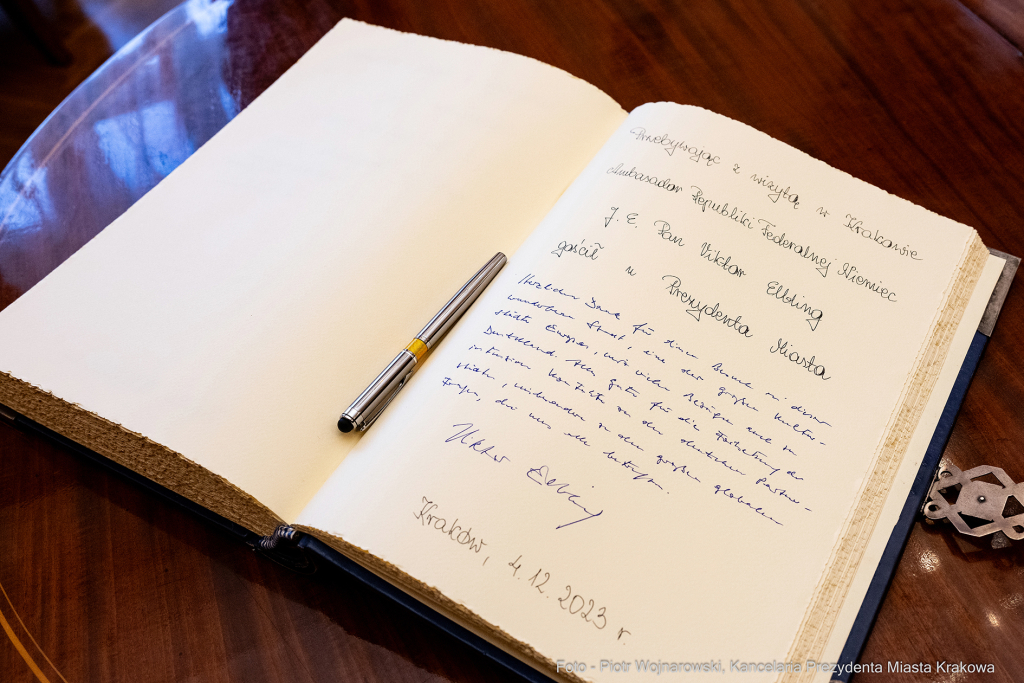 Przebywając z wizytą w Krakowie
Ambasador Republiki Federalnej Niemiec
J. E. Pan Viktor Elbling
gościł u Prezydenta Miasta
Herzlichen Dank für diesen Besuch in dieser
wunderbaren Stadt, eine der großen Kultur-
städte Europas, mit vielen Bezügen auch zu
Deutschland. Alles Gute für die Fortsetzung der
intensiven Kontakte zu den deutschen Partner-
städten, insbesondere zu den großen globalen
Fragen, die uns alle betreffen.
Viktor Elbling
Kraków, 4.12.2023 r
Foto - Piotr Wojnarowski, Kancelaria Prezydenta Miasta Krakowa